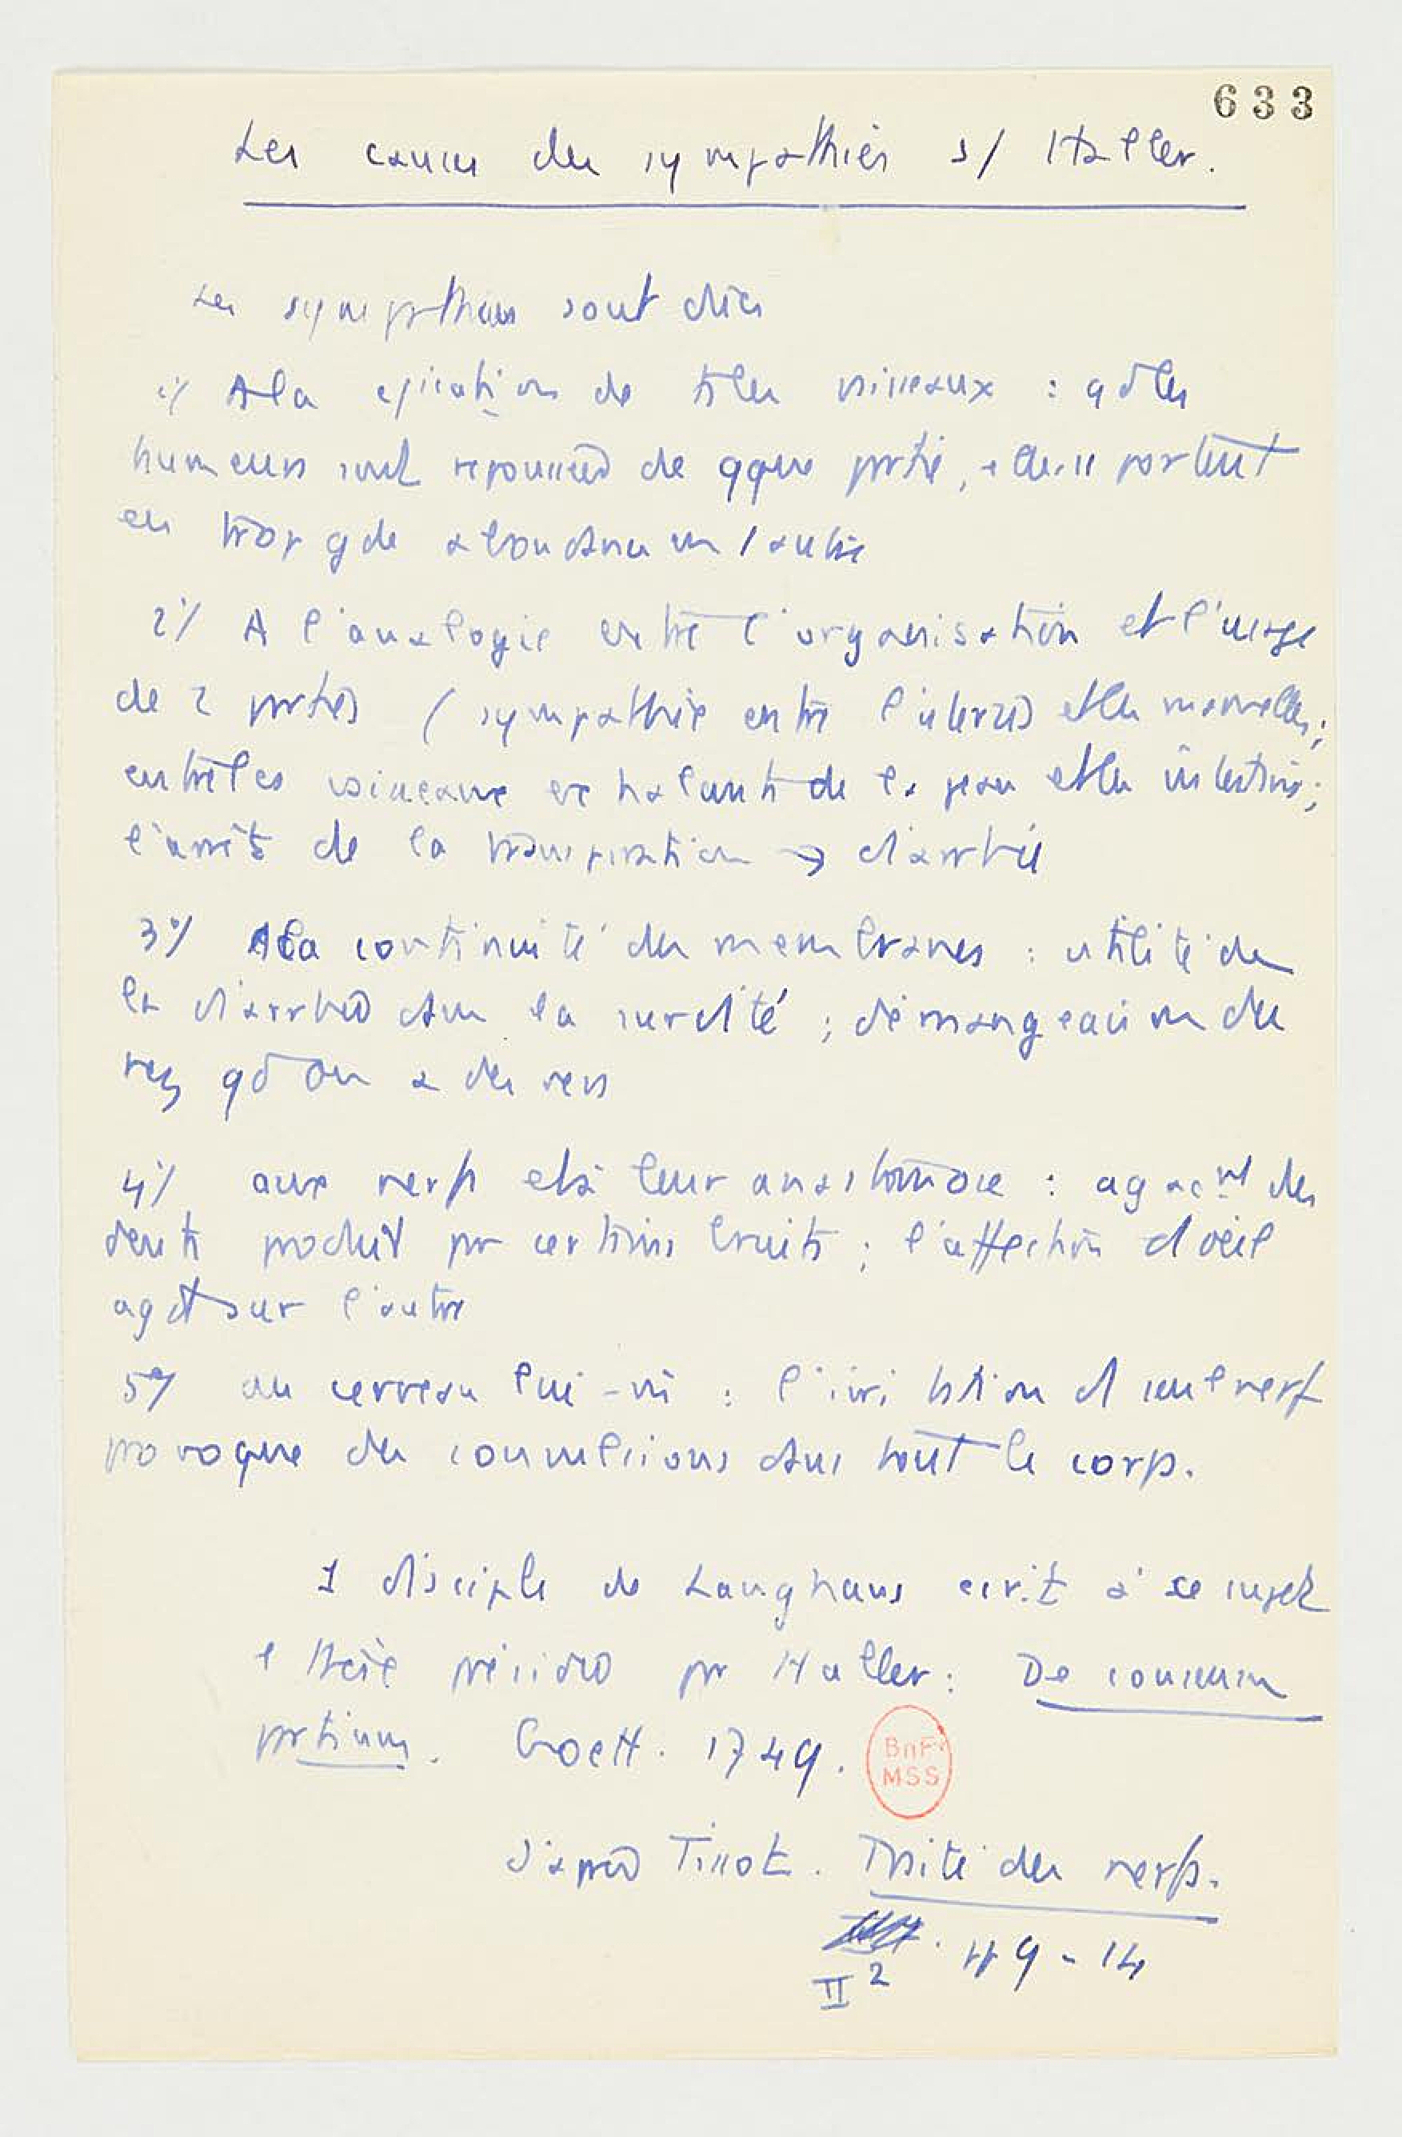 633
Les causes des sympathies s/ Haller.
Les sympathies sont dues
1°/ A la des vaisseaux : qd les
humeurs sont repoussées de qque partie, elles se portent
en trop gde abondance ds l'autre
2°/ A l'analogie entre l'organisation et l'usage
de 2 parties (sympathie entre l'uterus et les mamelles;
entre les vaisseaux exhalants de la peau et les intestins;
l'arrêt de la transpiration → diarrhée
3°/ A la continuité des membranes : utilité de
la diarrhée dans la surdité ; démangeaison du
nez qd on a des vers
4°/ aux nerfs et à leur anastomose : agacemt des
dents produit par certains bruits ; l'affection d'1 oeil
agit sur l'autre
5°/ au cerveau lui-mê : l'irritation d'1 seul nerf
provoque des convulsions dans tout le corps.
1 disciple de Langhans écrit à ce sujet
1 thèse présidée par Haller : De consensu
partium. Goett. 1749.
BnF
MSS
D'après Tissot. Traité des nerfs.
II 2 pp 9-14